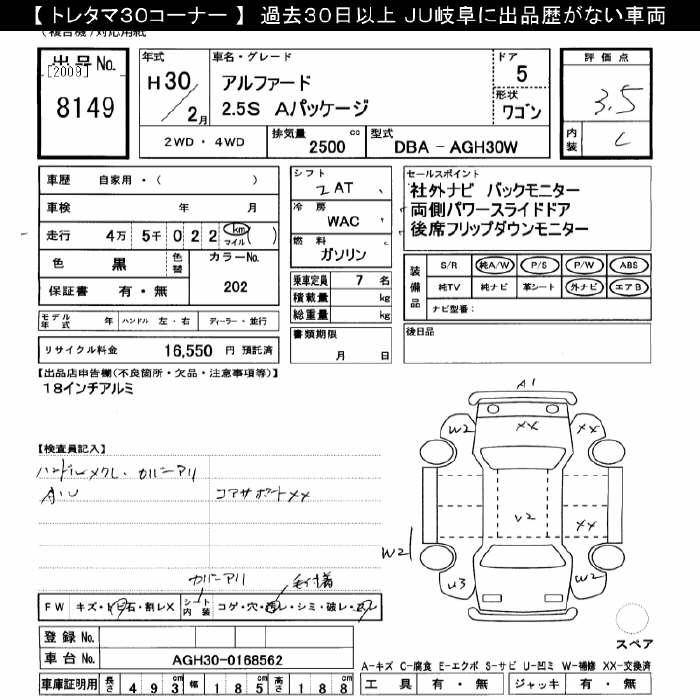 【 トレタマ30コーナー 】 過去30日以上 JU岐阜に出品歴がない車両
(複合機)対応用紙
出品No.
[2009]
8149
年式
H30/2月
車名・グレード
アルファード
2.5S Aパッケージ
ドア
5
形状
ワゴン
2WD・4WD
排気量
2500 cc
型式
DBA － AGH30W
評価点
3.5
内装
C
車歴 自家用・( )
車検 年 月
走行 4万 5千 0 2 2 km マイル ( )
色 黒 色替 カラーNo.
保証書 有・無 202
モデル年式 年 ハンドル 左・右 ディーラー・並行
リサイクル料金 16,550 円 預託済
シフト
2 AT
冷房
WAC
燃料
ガソリン
乗車定員 7 名
積載量 kg
総重量 kg
書類期限
月 日
セールスポイント
社外ナビ バックモニター
両側パワースライドドア
後席フリップダウンモニター
装備品
S/R 純A/W P/S P/W ABS
純TV 純ナビ 革シート 外ナビ エアB
ナビ型番:
後日品
【出品店申告欄(不良箇所・欠品・注意事項等)】
18インチアルミ
【検査員記入】
ハンドルメクレ・カバーアリ
A・U コアサポートXX
カバーアリ
FW キズ・トビ石・割レX
シート内装 コゲ・穴・汚レ・シミ・破レ・
登録No.
車台No. AGH30-0168562
車庫証明用 長さ 493 cm 幅 185 cm 高さ 188 cm
A1
W2 XX XX
V2
XX
W2
U3 W2
スペア
A-キズ C-腐食 E-エクボ S-サビ U-凹ミ W-補修 XX-交換済
工具 有・無 ジャッキ 有・無